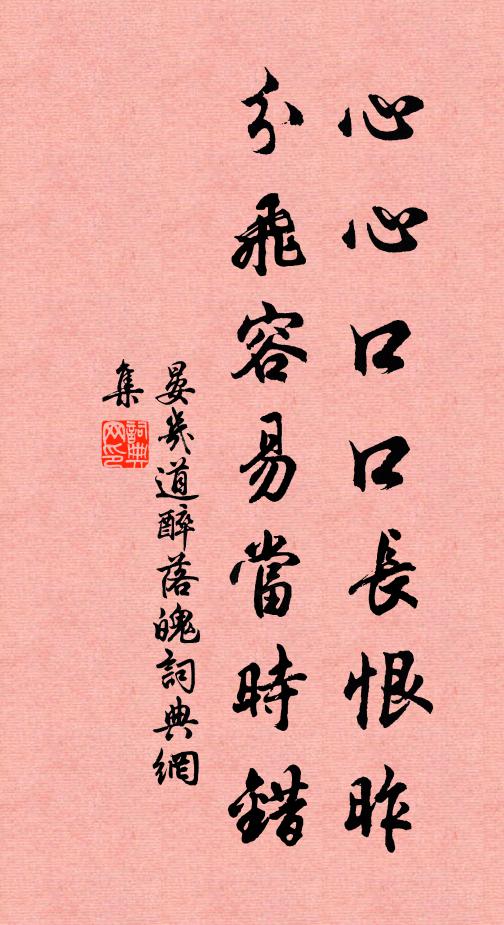 心心口口長恨昨
分飛容易當時錯
晏幾道醉落魄詞典網
集
詞典網印